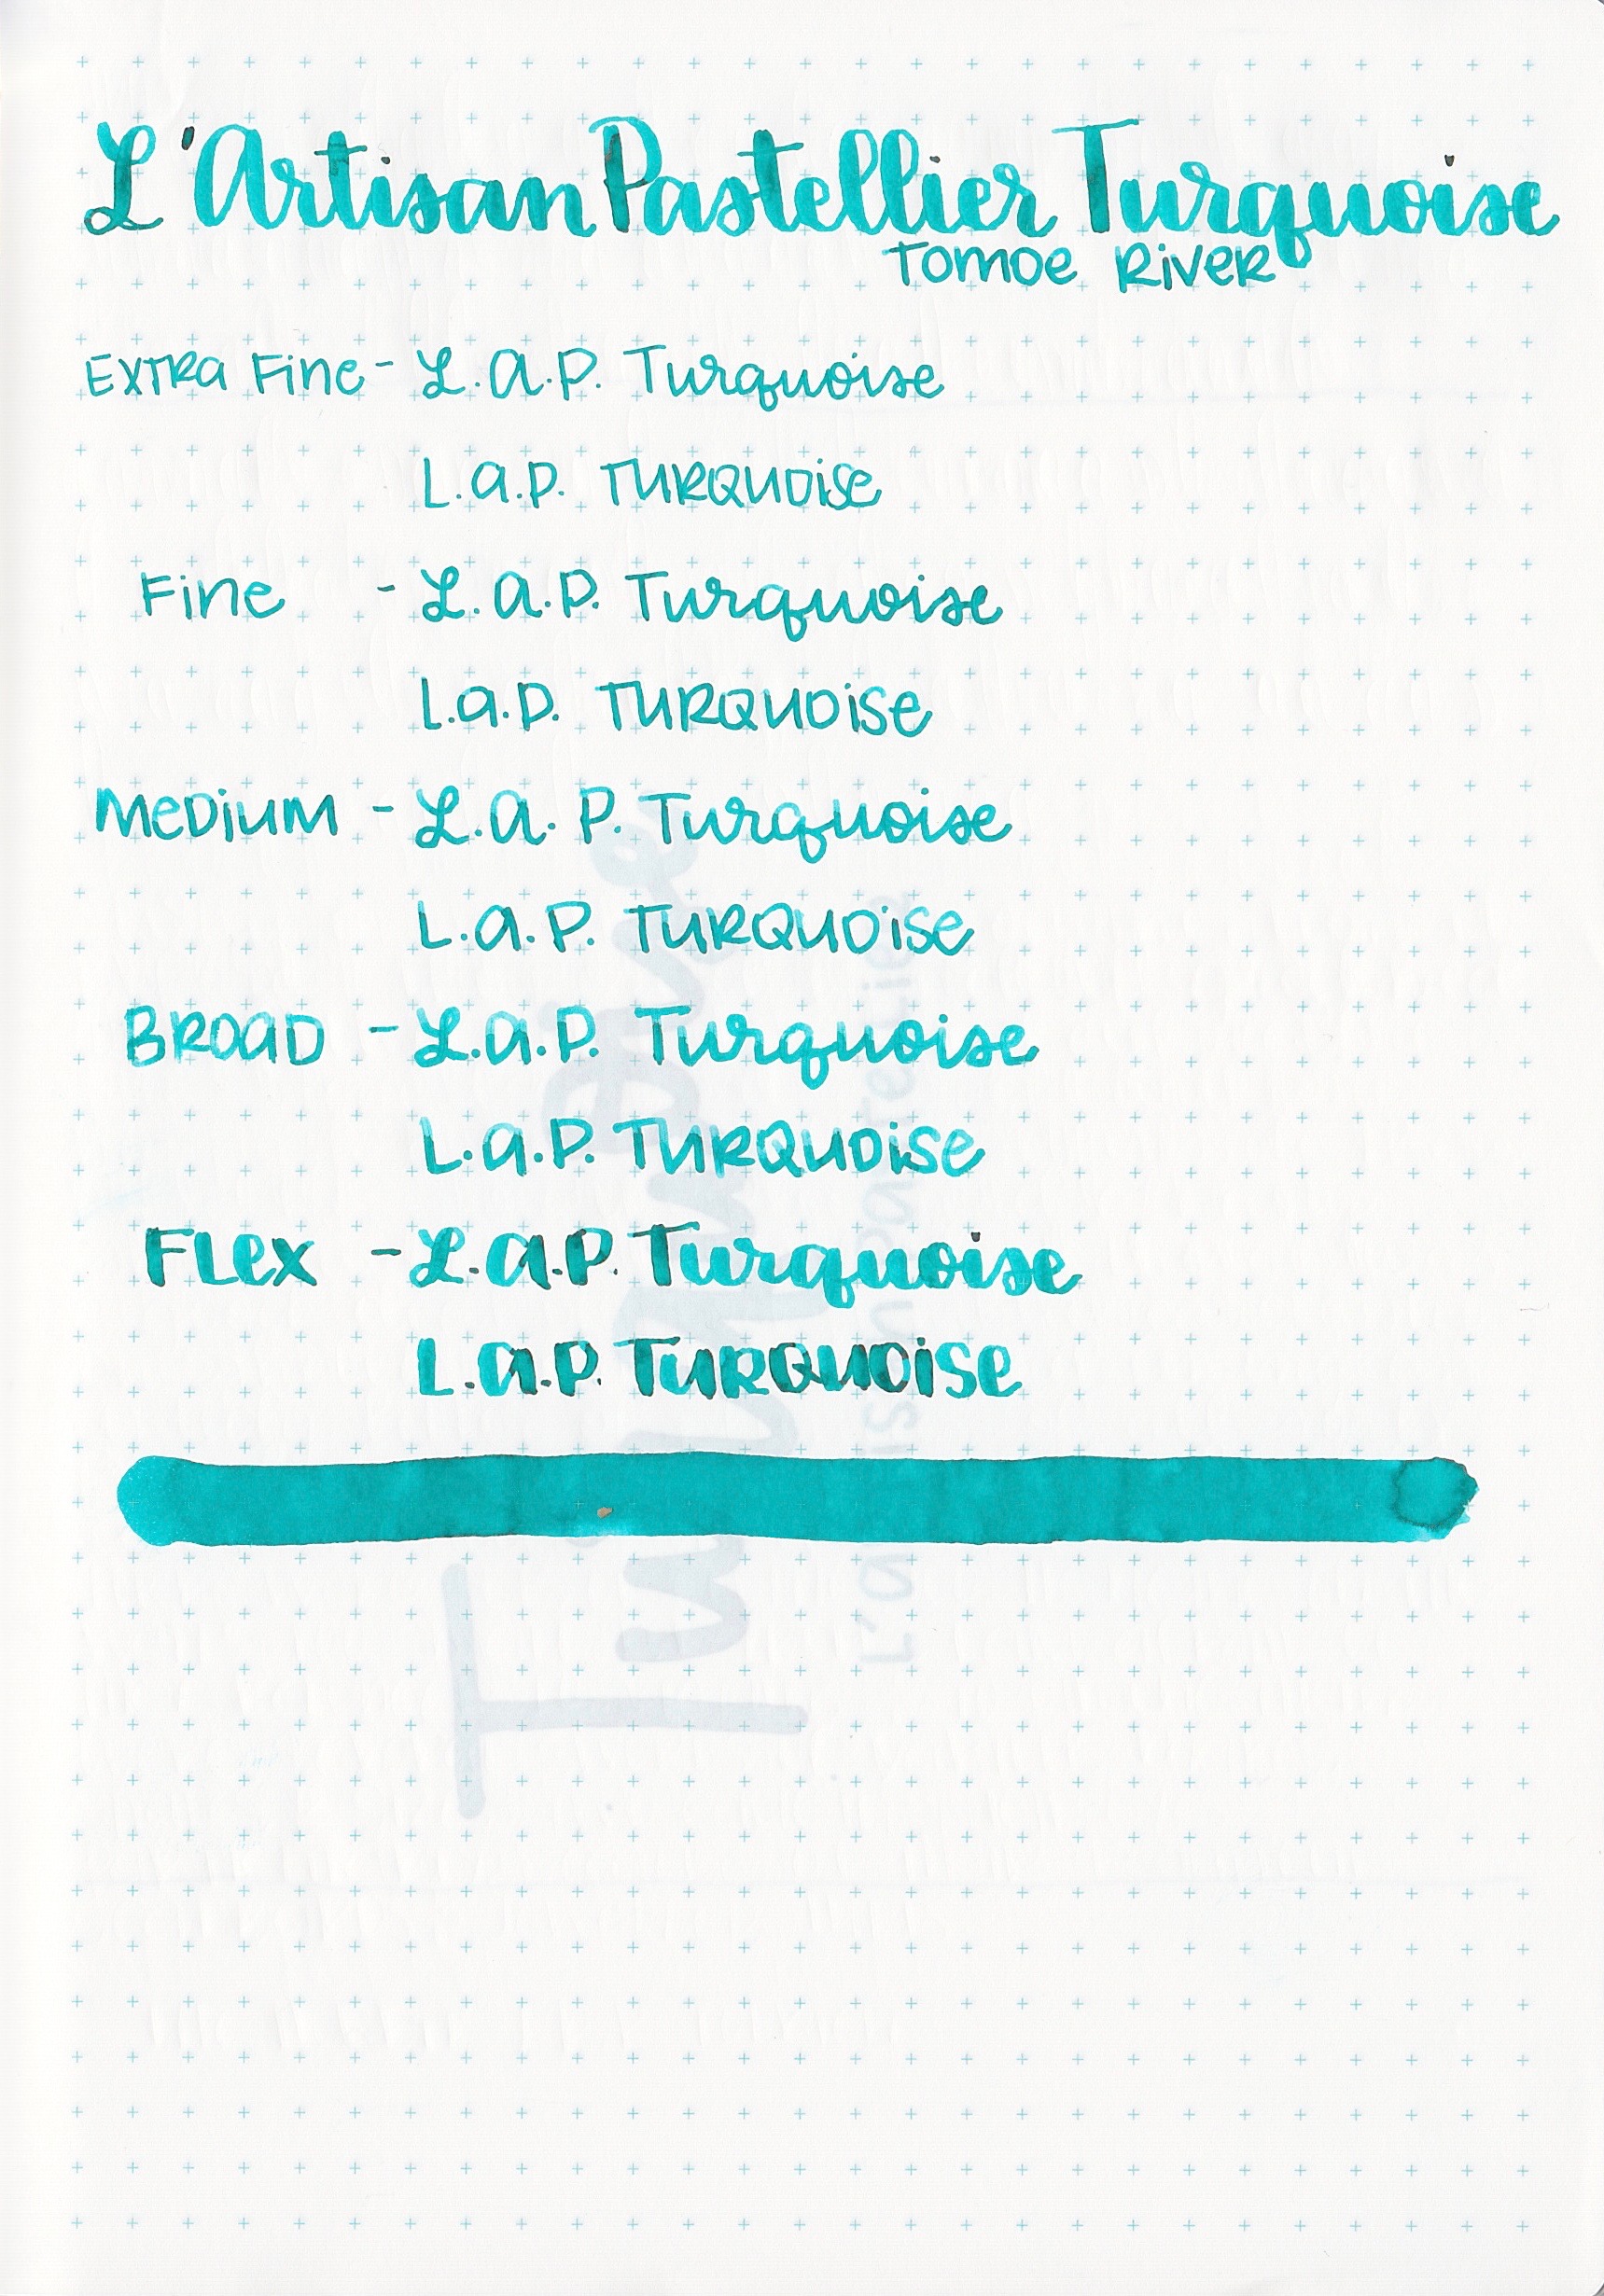 L'Artisan Pastellier Turquoise
Tomoe River
Extra Fine - L.A.P. Turquoise
L.a.P. Turquoise
Fine - L.A.P. Turquoise
L.a.P. Turquoise
Medium - L.A.P. Turquoise
L.a.P. Turquoise
Broad - L.a.P. Turquoise
L.a.P. Turquoise
Flex - L.a.P. Turquoise
L.a.P. Turquoise